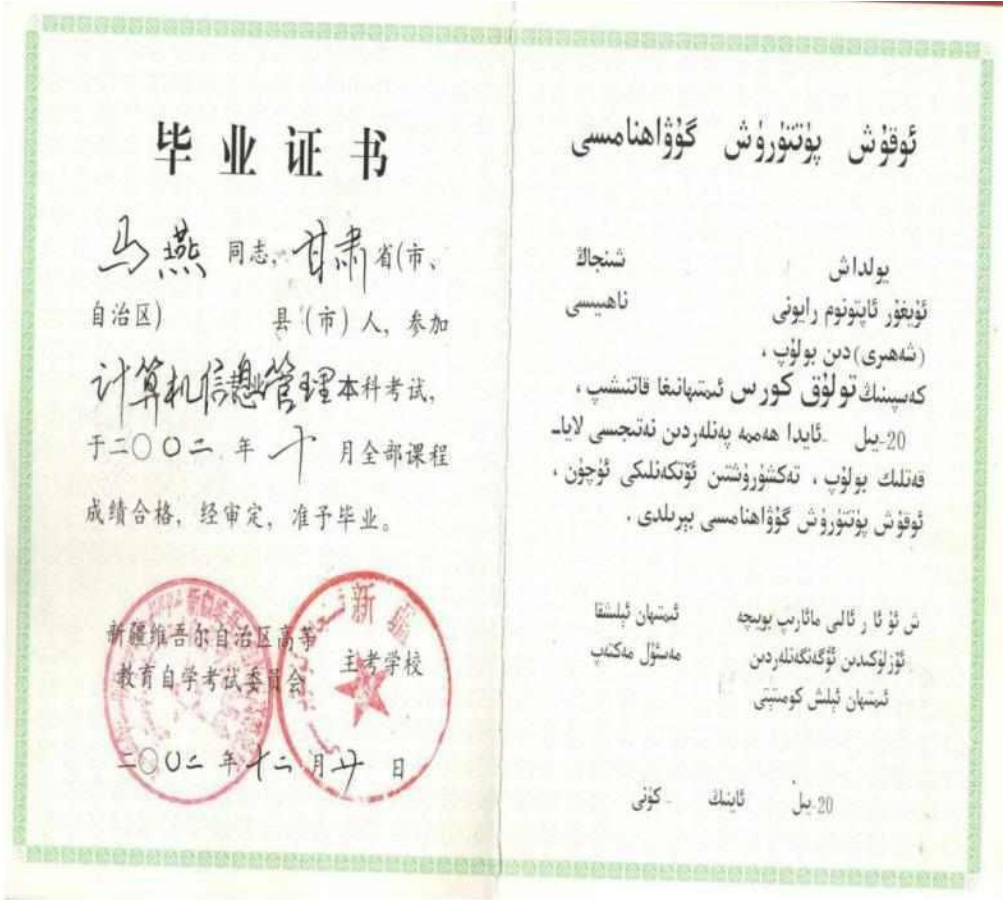 毕业证书
马燕同志，甘肃省(市、
自治区) 县(市)人，参加
计算机信息管理本科考试，
于二〇〇二年十月全部课程
成绩合格，经审定，准予毕业。
新疆维吾尔自治区高等
教育自学考试委员会
主考学校
二〇〇二年十二月廿日
新疆
ئوقۇش پۈتتۈرۈش گۇۋاھنامىسى
يولداش شىنجاڭ
ئۇيغۇر ئاپتونوم رايونى ناھىيىسى
(شەھرى) دىن بولۇپ ،
كەسپىنىڭ تولۇق كورس ئىمتىھانىغا قاتنىشىپ ،
20-يىل -ئايدا ھەممە پەنلەردىن نەتىجىسى لايا-
قەتلىك بولۇپ ، تەكشۈرۈشتىن ئۆتكەنلىكى ئۈچۈن ،
ئوقۇش پۈتتۈرۈش گۇۋاھنامىسى بېرىلدى .
ش ئۇ ئا ر ئالىي مائارىپ بويىچە
ئۆزلۈكىدىن ئۆگەنگەنلەردىن
ئىمتىھان ئېلىش كومىتېتى
ئىمتىھان ئېلىشقا
مەسئۇل مەكتەپ
20-يىل ئاينىڭ - كۈنى